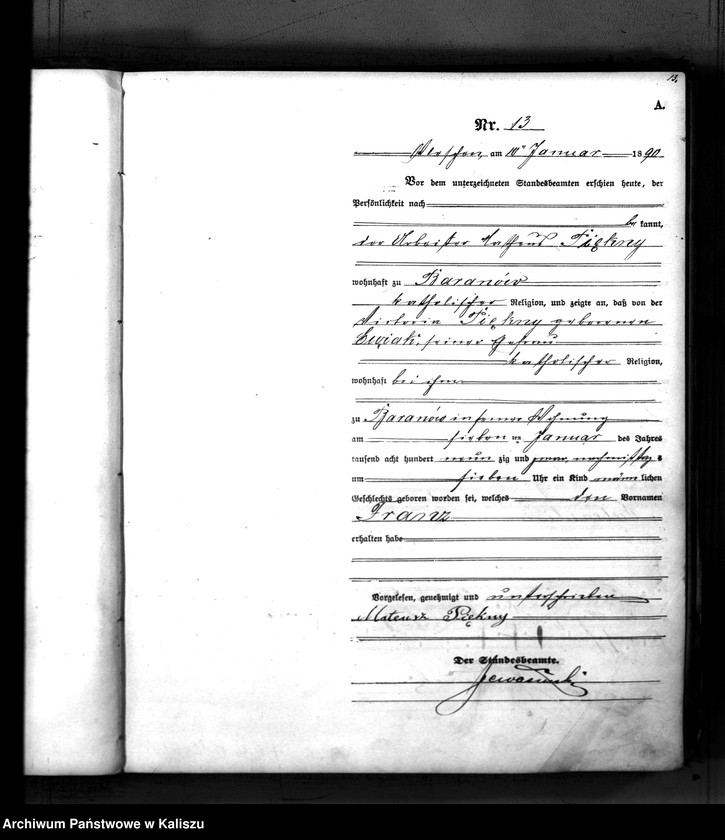 13.
A.
Nr. 13
am 10ⁿ Januar 1890
Vor dem unterzeichneten Standesbeamten erschien heute, der
Persönlichkeit nach
be kannt,
der Arbeiter Piękny
wohnhaft zu Baranów
katholischer Religion, und zeigte an, daß von der
Victoria Piękny geborenen
seiner Ehefrau
katholischer Religion,
wohnhaft bei ihm
zu Baranów in seiner Wohnung
am sieben ten Januar des Jahres
tausend acht hundert neun zig und zwar nachmittags
um sieben Uhr ein Kind männ lichen
Geschlechts geboren worden sei, welches den Vornamen
Franz
erhalten habe
Vorgelesen, genehmigt und unterschrieben
Mateusz Piękny
Der Standesbeamte.
Archiwum Państwowe w Kaliszu